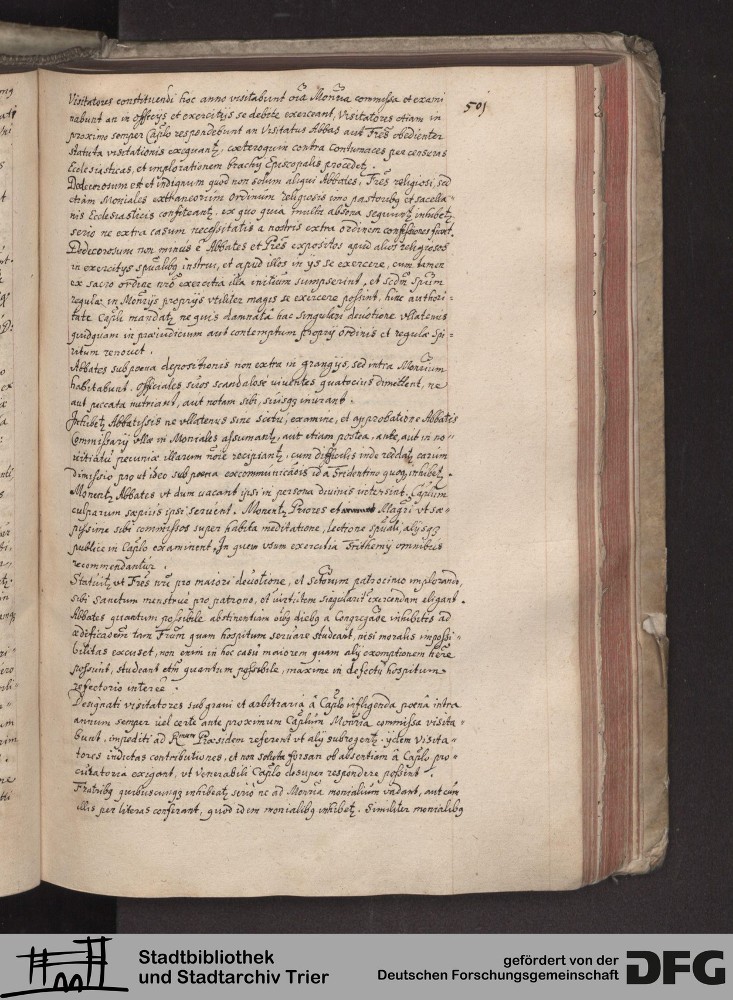 501
Visitatores constituendi hoc anno visitabunt oīa Monria commissa et exami
nabunt an in officijs et exercitijs se debite exerceant, Visitatores etiam in
proximo semper Caplo respondebunt an Visitatus Abbas aut Fres obedienter
statuta visitationis exequantz, cæteroquin contra Contumaces per censuras
Ecclesiasticas, et implorationem brachij Episcopalis procedetz.
Dedecorosum est et indignum quod non solum aliqui Abbates, Fres religiosi, sed
etiam Moniales exthraneorum ordinum religiosis imo pastoribz et sacella
nis Ecclesiasticis confiteantz, ex quo quia multa absona sequuntz inhibetz
serio ne extra casum necessitatis a nostris extra ordinem confessiones fiant.
Dedecorosum non minus ē Abbates et Pres expositos apud alios religiosos
in exercitijs spūalibz instrui, et apud illos in ijs se exercere, cum tamen
ex sacro ordine nrō exercitia illa initium sumpserint, et scdm spūm
regulæ in Monrijs proprijs vtiliter magis se exercere possint, hinc authori-
tate Capli mandatz ne quis damnata hac singulari deuotione vllatenus
quidquam in præiudicium aut contemptum proprij ordinis et regulæ spi-
ritum renouet.
Abbates sub poena depositionis non extra in grangijs, sed intra Monrium
habitabunt. Officiales suos scandalosè viuentes quatocius dimettent, ne
aut peccata nutriant, aut notam sibi, suisqz inurant.
Inhibetz Abbatissis ne vllatenus sine scitu, examine, et approbatione Abbatis
Commissarij vllæ in Moniales assumantz, aut etiam postea, ante, aut in no-
uitiatu pecunia illarum noīe recipiantz, cum difficilis inde reddatz earum
dimissio pro ut ideo sub poena excommunicaōis id a Tridentino quoqz inhibetz.
Monentz Abbates vt dum uacant ipsi in persona diuinis intersint, Caplum
culparum sæpius ipsi seruent. Monentz Priores et Magri vt sæ-
pissime sibi commissos super habita meditatione, lectione spūali, alijsqz
publice in Caplo examinent, In quem vsum exercitia Trithemij omnibus
recommendantur.
Statuitz ut Fres nri pro maiori deuotione, et Sctorum patrocinio implorando,
sibi Sanctum menstruè pro patrono, et virtutem singularit exercendam eligant.
Abbates quantum possibile abstinentiam oībz diebz a Congrgāoe inhibitis ad
ædificaōem tam Frum quam hospitum seruare studeant, nisi moralis impossi-
bilitas excuset, non enim in hoc casu maiorem quam alij exemptionem habere
possunt, studeant etm quantum possibile, maxime in defectu hospitum
refectorio interee.
Designati visitatores sub graui et arbitraria à Caplo infligenda poenâ intra
annum semper uel certe ante proximum Caplum Monria commissa visita-
bunt, impediti ad Rmum Præsidem referent vt alij subrogentz. ijdem visita-
tores indictas contributiones, et non soluta forsan ob absentiam à Caplo pro-
curatoria exigant, vt Venerabili Caplo desuper respondere possint.
Fratribz quibuscunqz inhibeatz serio ne ad Monria monialium vadant, aut cum
illis per literas conferant, quod idem monialibz inhibetz. Similiter monialibz
Stadtbibliothek
und Stadtarchiv Trier
gefördert von der
Deutschen Forschungsgemeinschaft
DFG